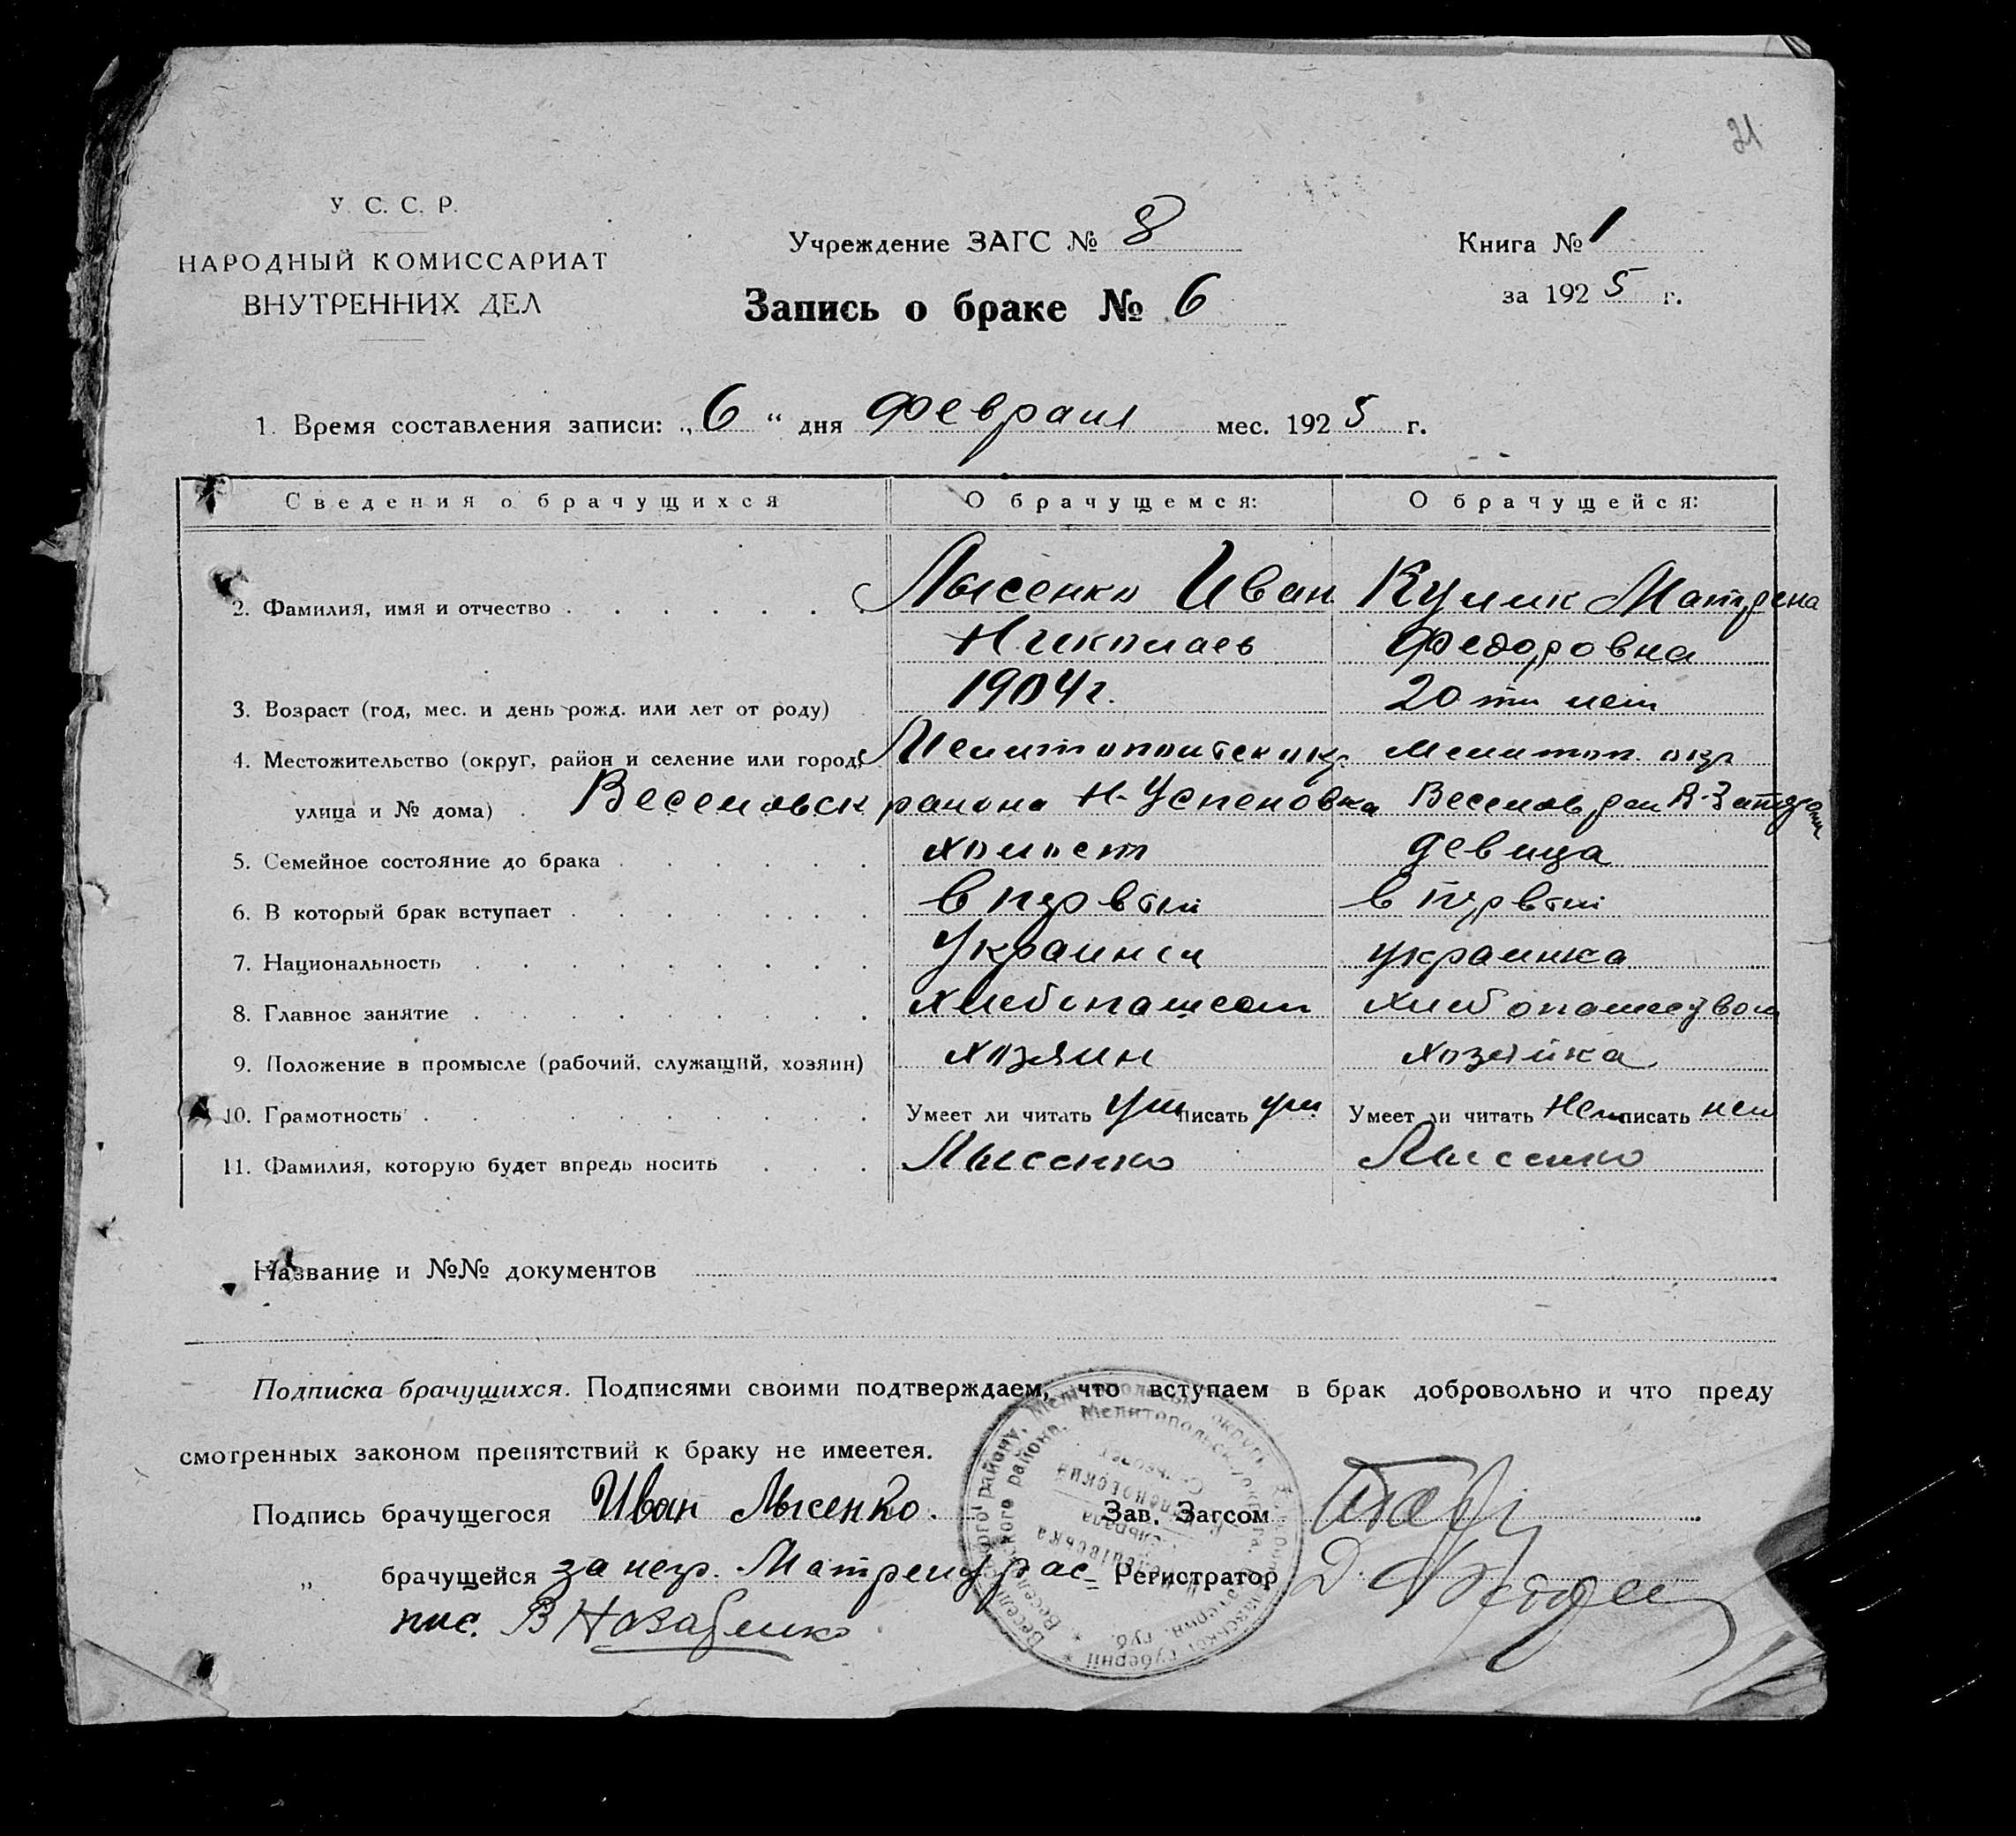 21
У. С. С. Р.
НАРОДНЫЙ КОМИССАРИАТ
ВНУТРЕННИХ ДЕЛ
Учреждение ЗАГС № 8
Книга № 1
за 1925 г.
Запись о браке № 6
1. Время составления записи: „6“ дня Февраля мес. 1925 г.
Сведения о брачущихся О брачущемся: О брачущейся:
2. Фамилия, имя и отчество Лысенко Иван Кулик Матрена
Николаев Федоровна
3. Возраст (год, мес. и день рожд. или лет от роду) 1904 г. 20 ти лет
4. Местожительство (округ, район и селение или город, Мелитопольск окр. мелитоп. окр
улица и № дома) Веселовск района Н-Успеновка Веселов рай
5. Семейное состояние до брака холост девица
6. В который брак вступает в первый в первый
7. Национальность Украинец украинка
8. Главное занятие
9. Положение в промысле (рабочий, служащий, хозяин) хозяин хозяйка
10. Грамотность Умеет ли читать ум писать ум Умеет ли читать Нет писать нет
11. Фамилия, которую будет впредь носить Лысенко Лысенко
Название и №№ документов
Подписка брачущихся. Подписями своими подтверждаем, что вступаем в брак добровольно и что преду
смотренных законом препятствий к браку не имеетея.
Подпись брачущегося Иван Лысенко. Зав. Загсом
„ брачущейся за негр. Матрену рас- Регистратор Д.
пис. В